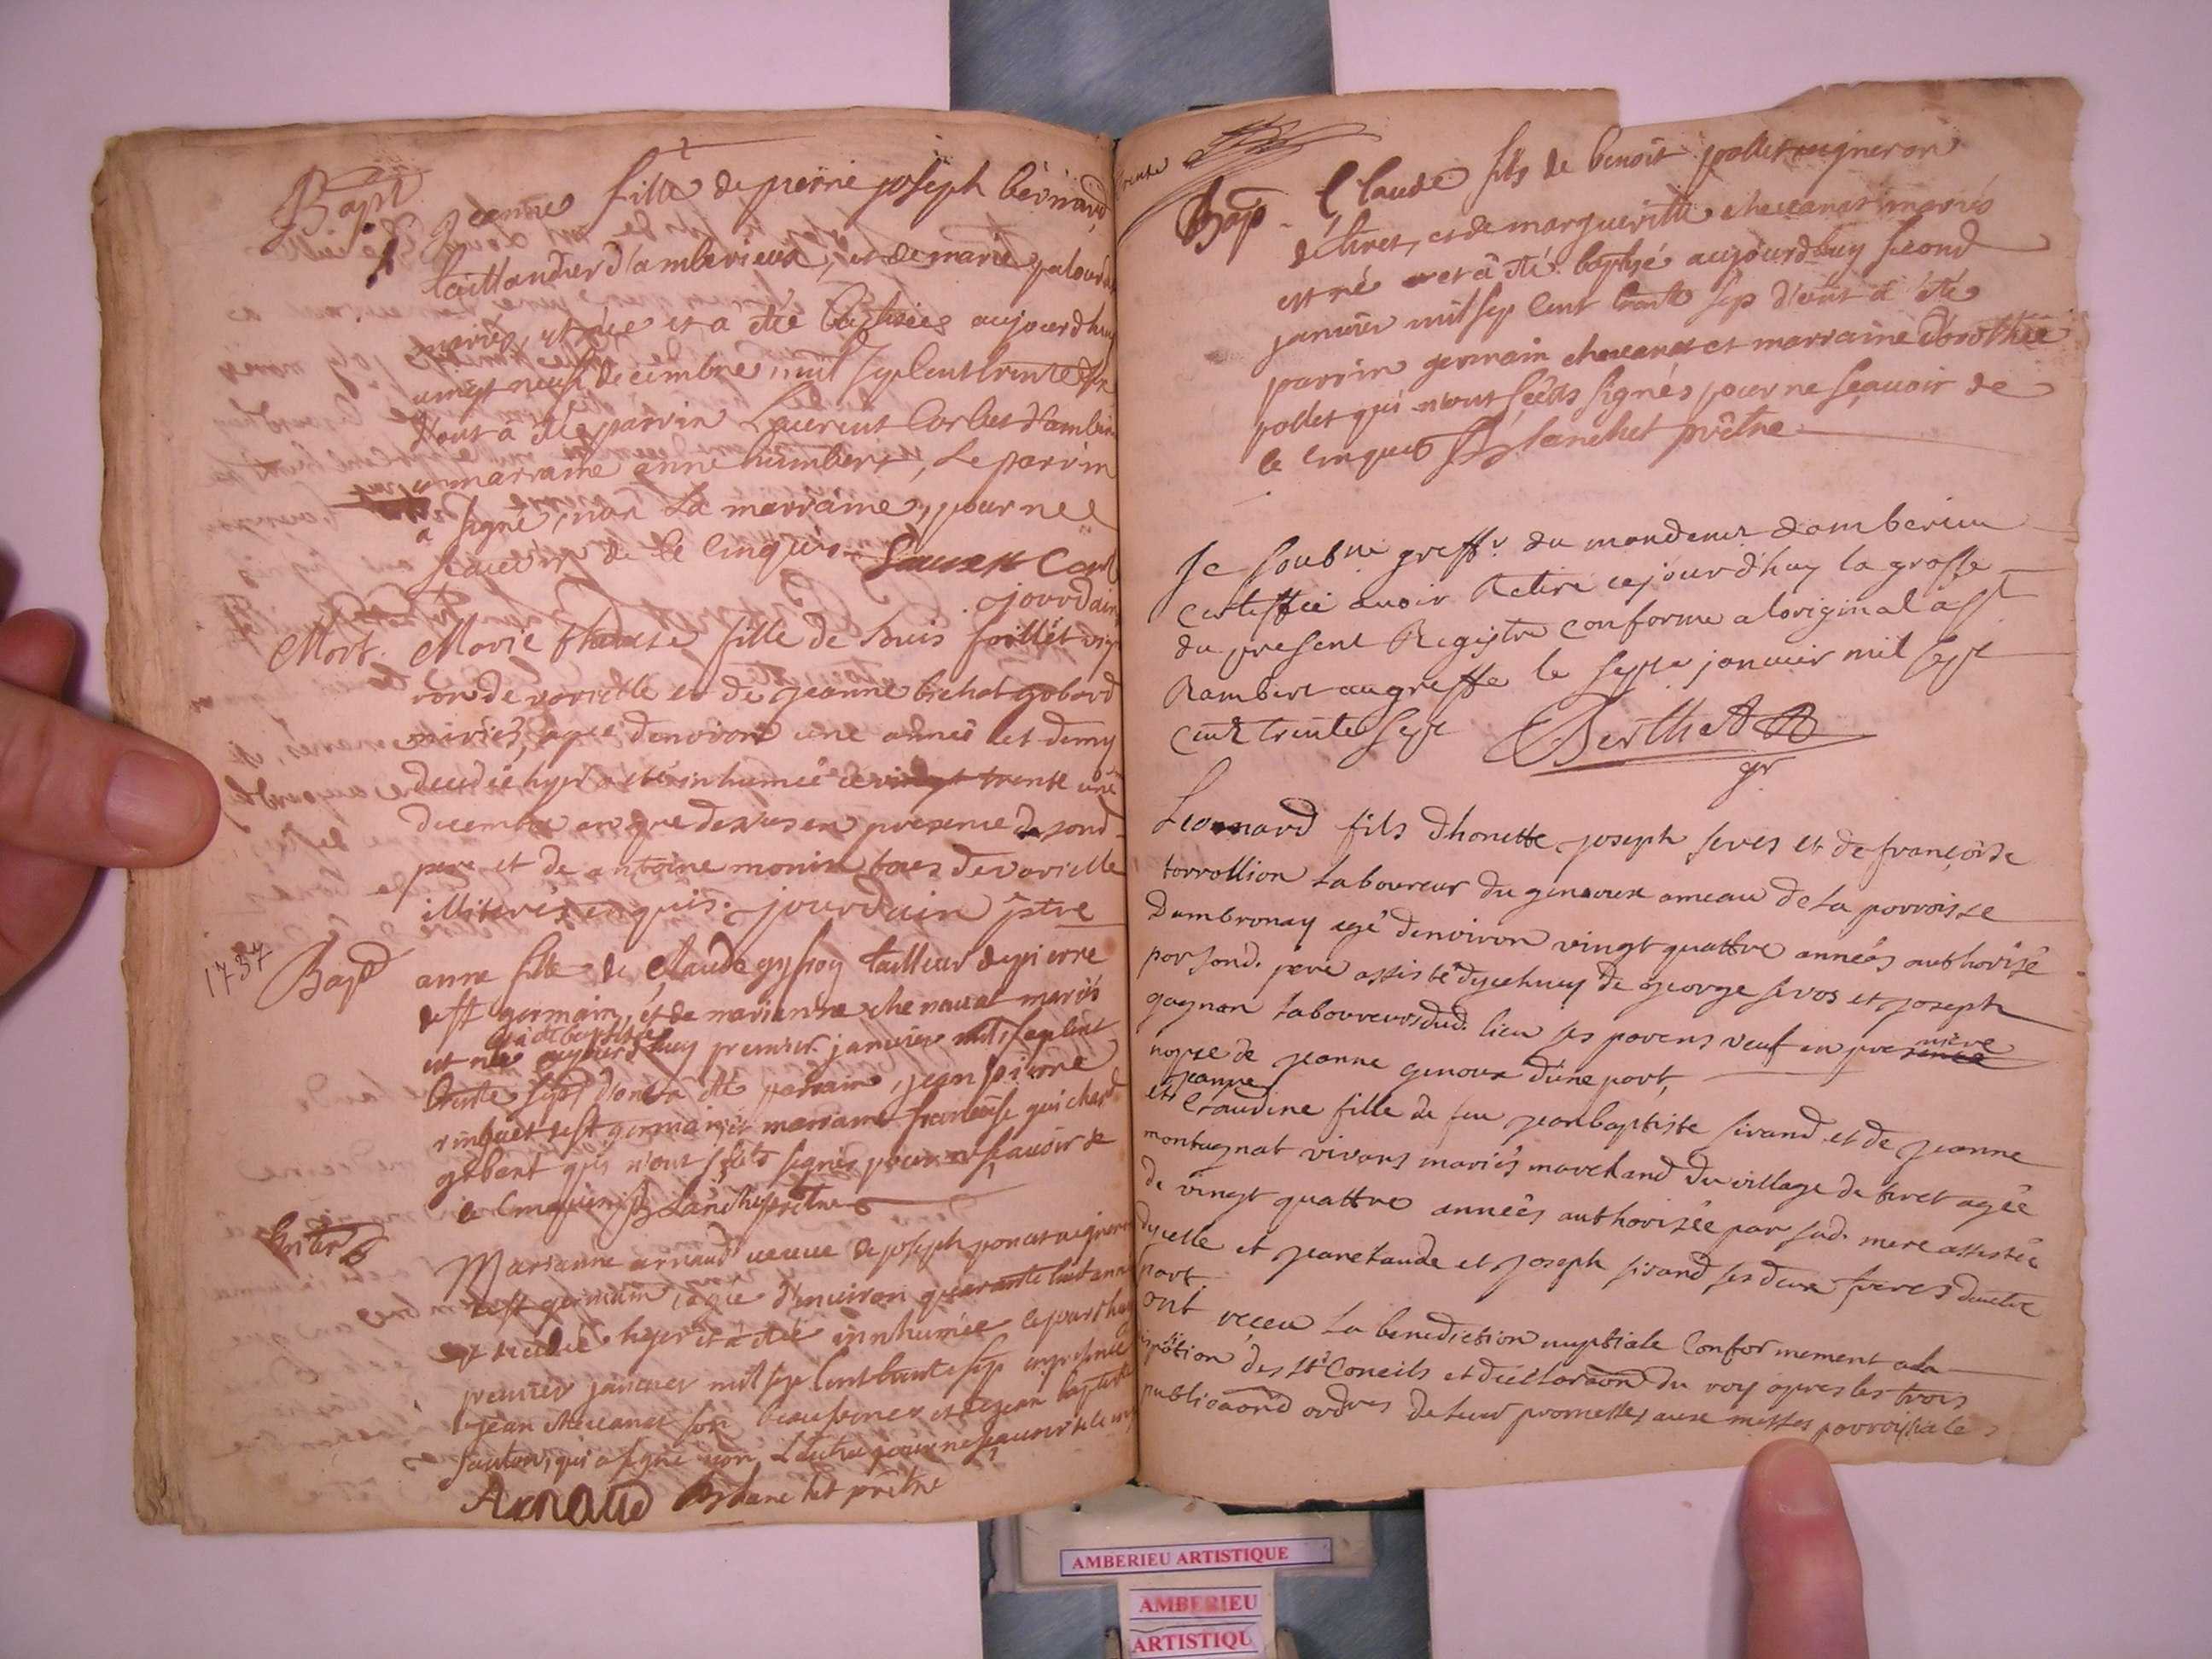 Bapt
Jeanne fille de pierre joseph bernard
taillandier d'amberieux, et de marie
mariés, est née et a été baptisée aujourdhuy
vingt neuf decembre mil sept cent trente six
dont a été parrin Laurent Corlier d'amberieu
marraine anne humbert, Le parrin
a signé, non la marraine, pour ne
sçavoir de ce enquise
jourdain
Mort. Marie therese fille de Louis foillet vigne
ron de varielle et de jeanne bichat gobard
mariés, agée denviron une année et demy
decedée hyer a eté inhumée ce vingt trente une
decembre an que dessus en presence de sond.
pere et de antoine monin tous de varielle
illiterés enquis. jourdain ptre
1737
Bapt anne fille de Claude gyfroy tailleur de pierre
de st germain, et de marienne chenavat mariés
et a été baptisée
est née aujourdhuy premier janvier mil sept cent
trente sept dont a été parrain, jean pierre
de st germain, et marraine francoise guichard
gobant qui n'ont sçeus signés pour ne sçavoir de
ce enquis Blanchet prêtre
Enter
Marianne arnaud veuve de joseph poncet vigneron
de st germain, agée d'environ quarante huit années
est decedée hyer et a été innhumée ce jourdhuy
premier janvier mil sept cent trente sept en presence
de jean chavanat son beaufrere et de jean baptiste
qui a signé non L'autre pour ne sçavoir de ce enquis
Arnaud Blanchet prêtre
trente
Bap - Claude fils de benoit pollet vigneron
de tiret, et de margueritte chavanat mariés
est né et a été baptisé aujourdhuy second
janvier mil sept cent trente sept dont a été
parrin germain chavanat et marraine dorothée
pollet qui n'ont sçeus signés pour ne sçavoir de
ce enquis Blanchet prêtre
Je soubné greffr du mandement damberieu
certiffie avoir Retiré cejourd'huy la grosse
du present Registre conforme a loriginal a st
Rambert au greffe le septe janvier mil sept
cent trente sept Berthet
gr
Leonard fils dhonette joseph serves et de françoise
torrollion laboureur du genoux ameau de la porroisse
Dambronay agé denviron vingt quattre années authorisé
par sond. pere assisté dyceluy de george servos et joseph
gagnon laboureurs dud. lieu ses parens veuf en premiere
nopse de jeanne genoux d'une part,
jeanne
et Claudine fille de feu jeanbaptiste sirand et de jeanne
montagnat vivans mariés marchand du village de tiret agée
de vingt quattre années authorisée par sad. mere assistée
dycelle et jeanclaude et joseph sirand ses deux freres dautre
part.
ont reçeu la benediction nuptiale Conformement a la
disposition des sts Concils et declaraon du roy apres les trois
publicaond ordres de leur promesses aux messes porroissiale
AMBERIEU ARTISTIQUE
AMBERIEU
ARTISTIQU